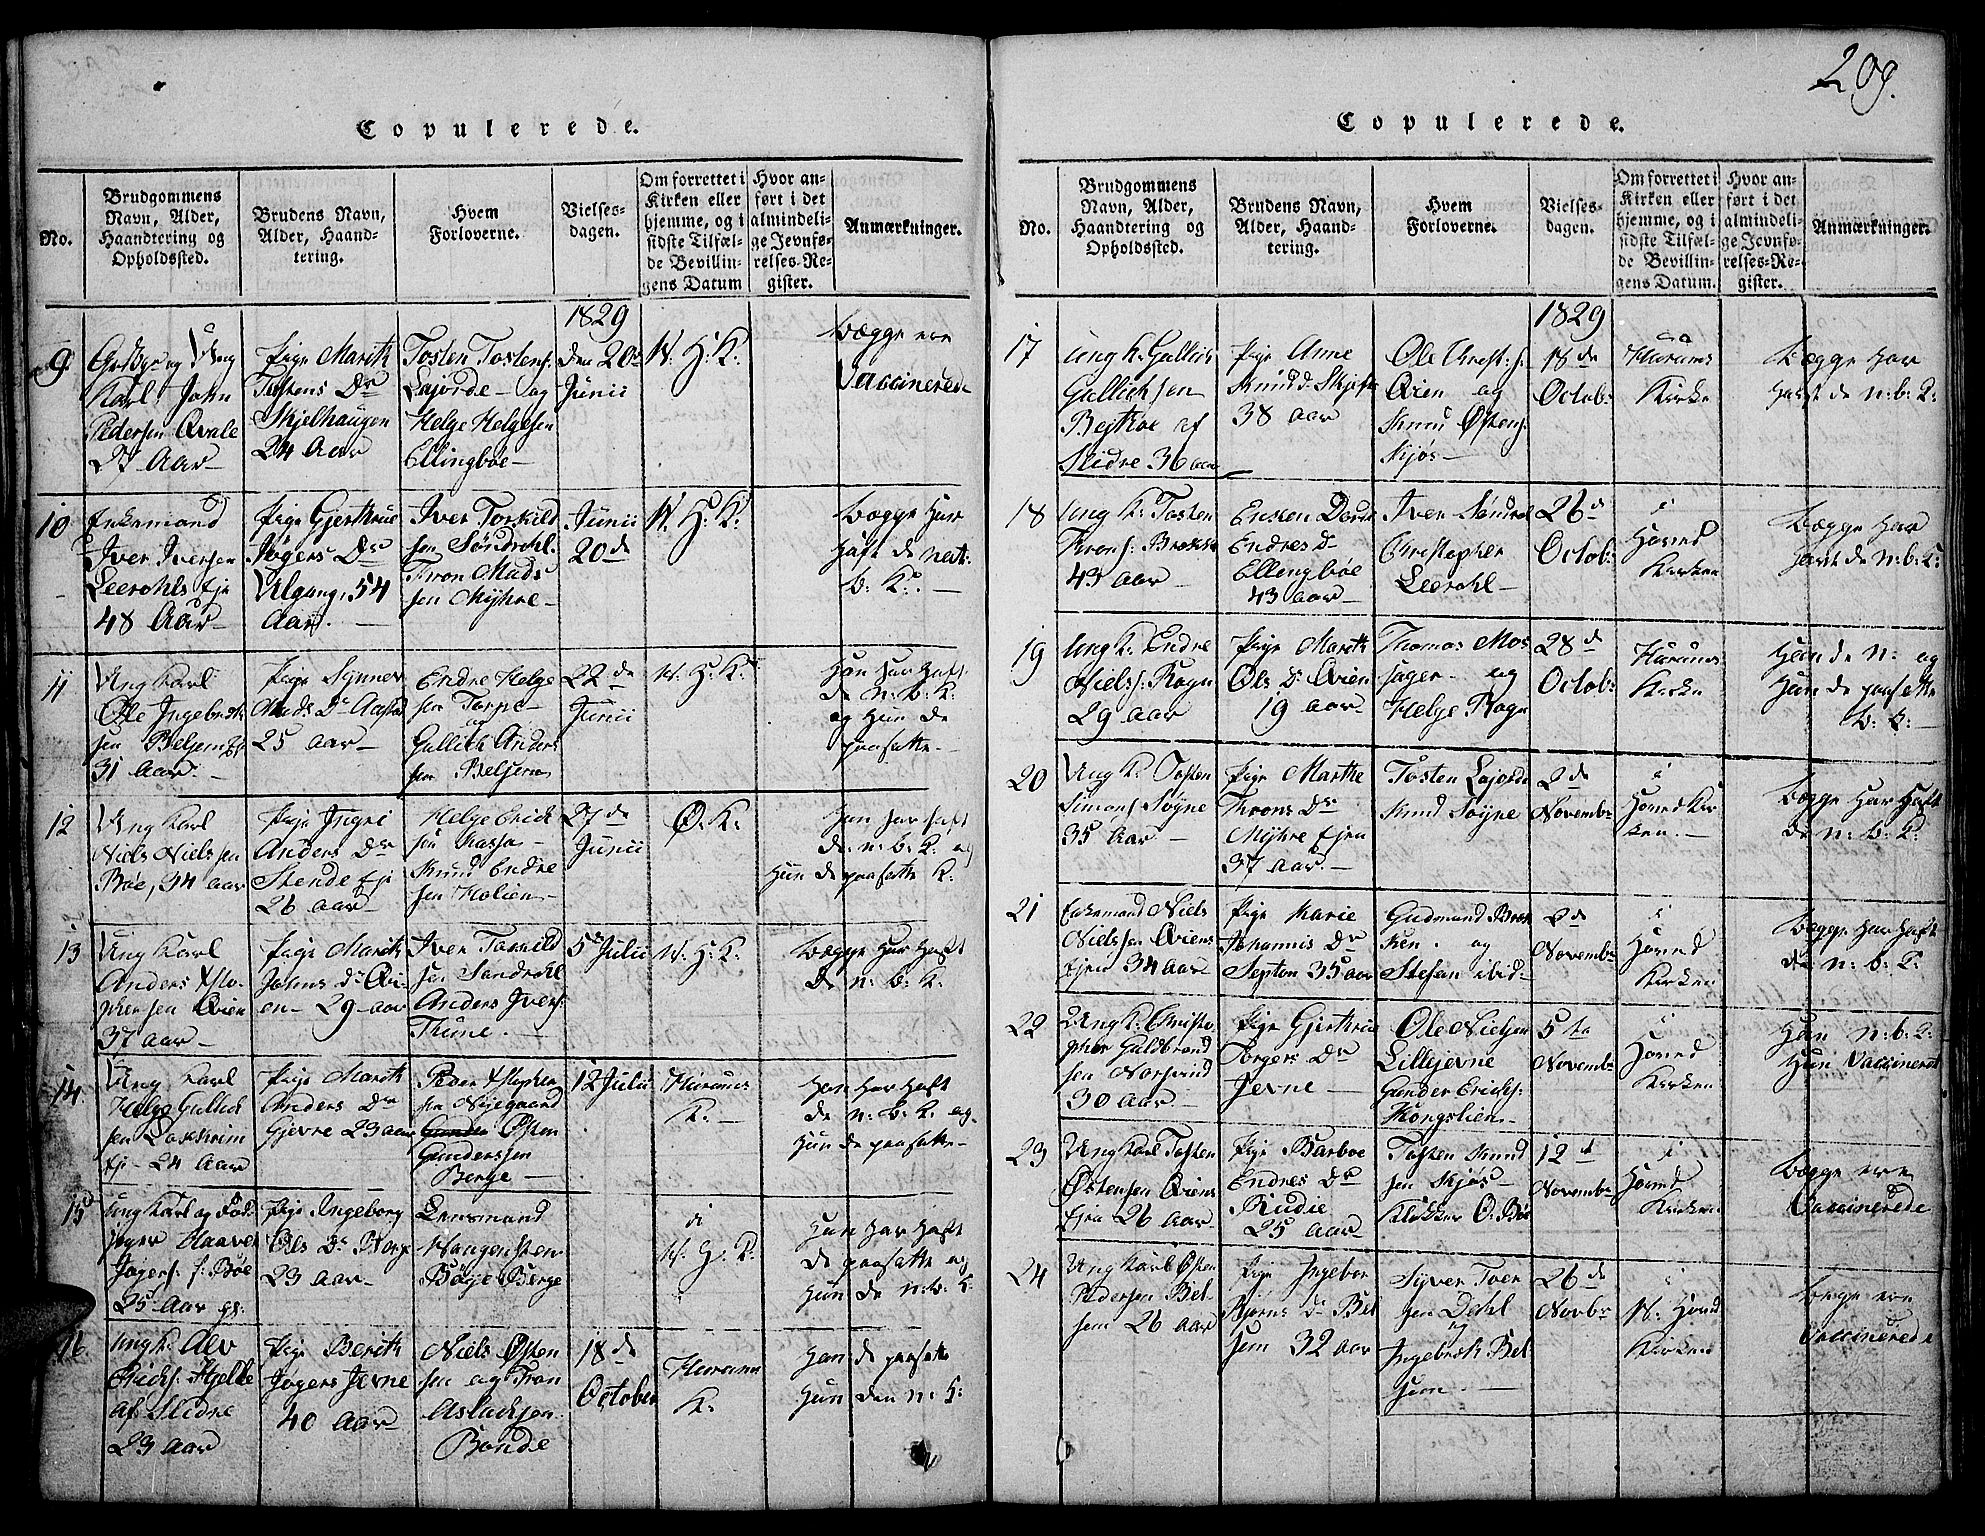 209.
Copulerede.
No.
Brudgommens
Navn, Alder,
Haandtering og
Opholdssted.
Brudens Navn,
Alder, Haand-
tering.
Hvem
Forloverne.
Vielses-
dagen.
Om forrettet i
Kirken eller
hjemme, og i
sidste Tilfæl-
de Bevillin-
gens Datum
Hvor an-
ført i det
almindeli-
ge Jevnfø-
relses-Re-
gister.
Anmærkninger.
1829
9
og Ung
Karl John
Pedersen Qvale
Aar
Pige Marith
Tostens Dr
Skjelhaugen
24 Aar
Tosten Tostens.
Lajorde og
Helge Helgesen
Ellingboe
den 20de
Junii
W. H. K.
bægge ere
Vaccinerede
10
Enkemand
Iver Iversen
Leerohls Eje
48 Aar
Pige Gjertrue
Jøgers Dr
54
Aar.
Iver Torkild
sen Søndrohl.
Tron Mads
sen Myhre
Junii
20de
W. H. K.
bægge har
haft de nat:
b: K:
11
Ung Karl
Ole Ingebrekt
sen Belsem
31 Aar.
Pige Synnev
Mads Dr
25 Aar
Endre Helge
sen Torpe
og
Gullich Anders
sen Belsem
22de
Junii
W. H. K.
han har haft
de n: b: K:
og hun de
paasatte
12
Ung Karl
Niels Nielsen
Bøe, 34 aar
Pige Ingri
Anders Dr
Stende Eje
26 aar
Helge Erick
sen Kassa
Knud Endre
sen Kolien
27de
Junii
Ø. K.
Han har haft
de n: b: K: og
Hun de paasatte K.
13
Ung Karl
Anders
sen Qvien
37 aar
Pige Marith
Johns dr Qvi-
en 29 aar
Iver Torkild
sen Søndrohl
Anders Ivers:
Thune.
5te Julii
W. H. K.
bægge har haft
de n: b: K.
14
Ung Karl
Helge Gullick
sen
Eje 24 Aar
Pige Marith
Anders Dr
Gjevre 23 aar
Peder
sen Nygaard
Østen
Gundersen
Berge
12 Julii
Hurums
K.
Han har haft
de n: b: K. og
Hun de paasatte
15
Ung Karl og
Haavel
Jøgers: s: Bøe
25 Aar
Pige Ingeborg
Ols Dr Berge
23 aar
Lensmand
Wangensten
Børje Berge
i
W. H. K.
Han har haft
de paasatte og
Hun de n: b: K
16
Ung K. Alv
Ericks: Hjelle
af Slidre
23 Aar
Pige Berith
Jøgers Jevne
40 Aar
Niels Østen
sen og Tron
Aslacksen
Bonde
18de
October
Hurums
K.
Han de paasatte
Hun den n: b:
Copulerede.
No.
Brudgommens
Navn, Alder,
Haandtering og
Opholdssted.
Brudens Navn,
Alder, Haand-
tering.
Hvem
Forloverne.
Vielses-
dagen.
Om forrettet i
Kirken eller
hjemme, og i
sidste Tilfæl-
de Bevillin-
gens Datum.
Hvor an-
ført i det
almindeli-
ge Jevnfø-
relses-Re-
gister.
Anmærkninger.
1829
17
Ung K. Gullick
Gullichsen
af
Slidre 36 aar
Pige Anne
Knud d.
38 aar
Ole Christ: s:
Qvien og
Knud Østens
Skjøs
18de
Octob:
Hurums
Kirke
bægge har
havt de n: b: K:
18
Ung K. Tosten
Trons:
43 aar
Enken
Endres D
Ellingbøe
43 aar
Iver Søndrol
Christopher
Leerohl
26de
Octob:
i
Hoved
Kirken
bægge har
havt de n: b: K:
19
Ung K. Endre
Niels s: Rogn
29 aar
Pige Marith
Ols Dr Qvien
19 aar
Thomas Mos
sager og
Helge Rogn
28de
Octob:
Hurums
Kirke
Han de n: og
Hun de paasatte
b: K:
20
Ung K. Tosten
Simons. Søyne
35 Aar
Pige Marthe
Trons Dr
Myhre Ejen
37 aar.
Tosten Lajorde
Knud Søyne
2de
Novembr
i
Hoved Kir
ken.
bægge har haft
de n: b: K:
21
Enkemand Niels
Nielssen Qviens
Ejen 34 Aar
Pige Marie
Johannis Dr
Septon 35 aar
Gudmand Brek
ken. og
Stefan ibid
2de
Novembr
i
Hoved
Kirken
bægge har haft
de n: b: K.
22
Ung K. Christo
pher Guldbrand
sen
30 Aar.
Pige Gjertrue
Torgers Dr
Jevne
Ole Nielsen
Lillejevne
Gunder Ericks:
Kongslien
5te
Novembr
i
Hoved
Kirken
Han n: b: K:
Hun Vaccineret
23
Ung Karl Tosten
Østensen Qviens
Ejen 26 Aar
Pige Barboe
Endres Dr
Rudie
25 Aar
Tosten Knud
sen Skjøs
Klokker O. Bøe
12te
Novembr
i
Hoved
Kirken
bægge ere
Vaccinerede
24
Ung Karl Østen
Pedersen Bel
sem 26 aar
Pige Ingebor
Bjørns dr Bel
sem 32 aar
Syver Toer
sen Dahl
og
Ingebrekt Bel
sem.
26de
Novbr
i
W. Hoved
Kirken
bægge ere
Vaccinerede